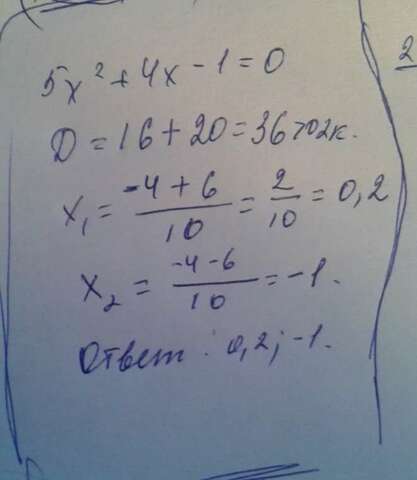 5x² + 4x - 1 = 0
2
D = 16 + 20 = 36 > 0 2к.
x₁ = (-4 + 6)/10 = 2/10 = 0,2
x₂ = (-4 - 6)/10 = -1.
Ответ: 0,2; -1.